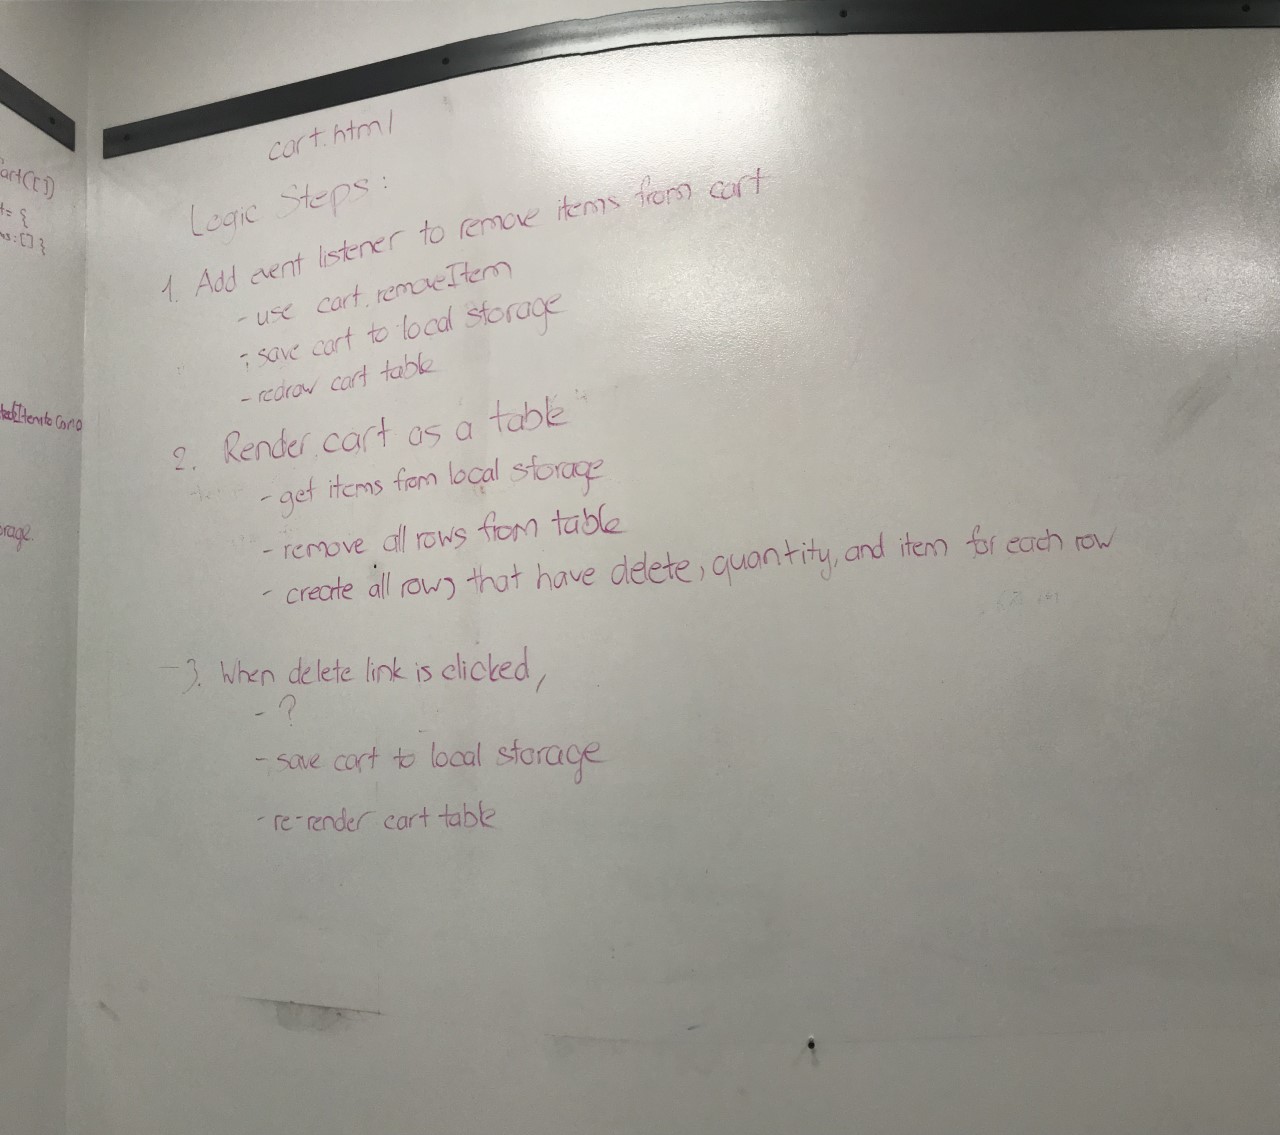 cart.html
Logic Steps:
1. Add event listener to remove items from cart
- use cart.removeItem
- save cart to local storage
- redraw cart table
2. Render cart as a table
- get items from local storage
- remove all rows from table
- create all rows that have delete, quantity, and item for each row
3. When delete link is clicked,
- ?
- save cart to local storage
- re-render cart table
art([])
t= {
s:[] }
rage.